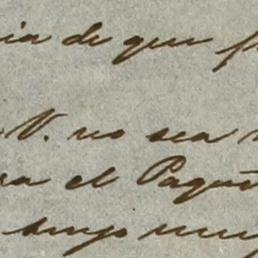 ia de que
V. no sea
ra el Paque
tengo muy